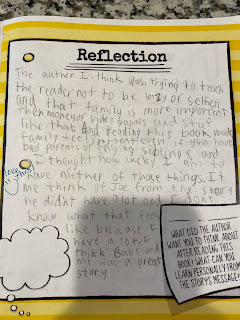 Reflection
The author I think was trying to teach
the reader not to be lazy or selfish
and that family is more important
then money or video games and stuf
like that. And reading this book made
me feel even if you have
bad parents or anoying siblings and
I thought how lucky I am to
have niether of those things. It
me think of Joe from the story
he didnt have alot and I dont
know what that feels
like because I
have a lot. I
think Babe and
me was a great
story
WHAT DID THE AUTHOR
WANT YOU TO THINK ABOUT
AFTER READING THIS
BOOK? WHAT CAN YOU
LEARN PERSONALLY FROM
THE STORY'S MESSAGE?